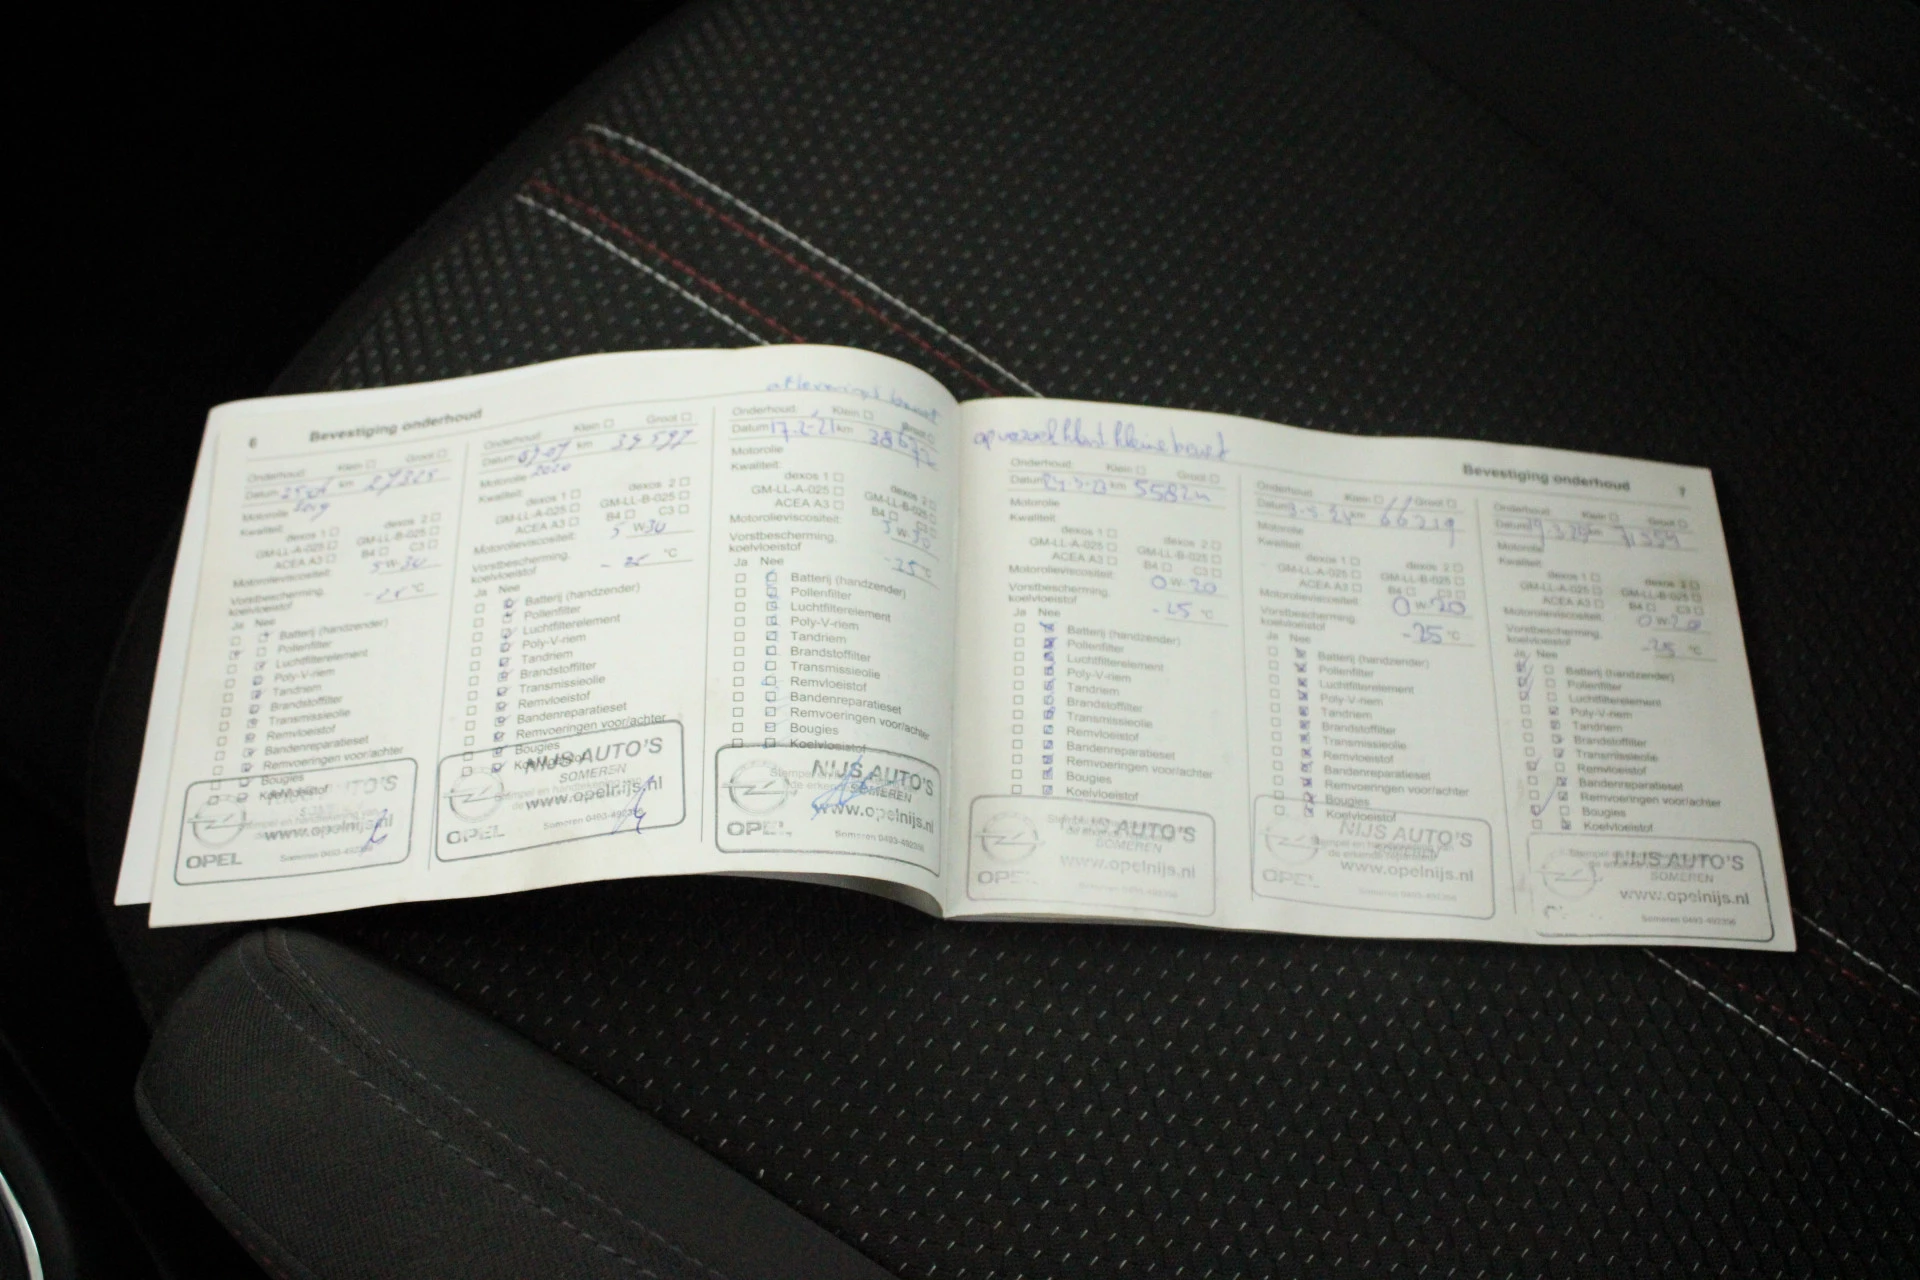 6 Bevestiging onderhoud
Onderhoud: Klein Groot
Datum km 27325
2019
Motorolie
Kwaliteit:
dexos 1 dexos 2
GM-LL-A-025 GM-LL-B-025
ACEA A3 B4 C3
Motorolieviscositeit: 5 W-30
Vorstbescherming,
koelvloeistof °C
Ja Nee
Batterij (handzender)
Pollenfilter
Luchtfilterelement
Poly-V-riem
Tandriem
Brandstoffilter
Transmissieolie
Remvloeistof
Bandenreparatieset
Remvoeringen voor/achter
Bougies
Koelvloeistof
NIJS AUTO'S
www.opelnijs.nl
OPEL
Someren 0493-492396
Onderhoud: Klein Groot
Datum km
2020
Motorolie
Kwaliteit:
dexos 1 dexos 2
GM-LL-A-025 GM-LL-B-025
ACEA A3 B4 C3
Motorolieviscositeit: 5 W-30
Vorstbescherming,
koelvloeistof - 25 °C
Ja Nee
Batterij (handzender)
Pollenfilter
Luchtfilterelement
Poly-V-riem
Tandriem
Brandstoffilter
Transmissieolie
Remvloeistof
Bandenreparatieset
Remvoeringen voor/achter
Bougies
Koelvloeistof
NIJS AUTO'S
SOMEREN
www.opelnijs.nl
OPEL
Someren 0493-492396
afleverings beurt
Onderhoud: Klein Groot
Datum 17-2-21 km 38672
Motorolie
Kwaliteit:
dexos 1 dexos 2
GM-LL-A-025 GM-LL-B-025
ACEA A3 B4 C3
Motorolieviscositeit: 5 W-30
Vorstbescherming,
koelvloeistof -25 °C
Ja Nee
Batterij (handzender)
Pollenfilter
Luchtfilterelement
Poly-V-riem
Tandriem
Brandstoffilter
Transmissieolie
Remvloeistof
Bandenreparatieset
Remvoeringen voor/achter
Bougies
Koelvloeistof
NIJS AUTO'S
SOMEREN
www.opelnijs.nl
OPEL
Someren 0493-492396
op verzoek klant kleine beurt
Bevestiging onderhoud 7
Onderhoud: Klein Groot
Datum km
Motorolie
Kwaliteit:
dexos 1 dexos 2
GM-LL-A-025 GM-LL-B-025
ACEA A3 B4 C3
Motorolieviscositeit: 0 W-20
Vorstbescherming,
koelvloeistof -25 °C
Ja Nee
Batterij (handzender)
Pollenfilter
Luchtfilterelement
Poly-V-riem
Tandriem
Brandstoffilter
Transmissieolie
Remvloeistof
Bandenreparatieset
Remvoeringen voor/achter
Bougies
Koelvloeistof
NIJS AUTO'S
SOMEREN
www.opelnijs.nl
OPEL
Onderhoud: Klein Groot
Datum km 66219
Motorolie
Kwaliteit:
dexos 1 dexos 2
GM-LL-A-025 GM-LL-B-025
ACEA A3 B4 C3
Motorolieviscositeit: 0 W-20
Vorstbescherming,
koelvloeistof -25 °C
Ja Nee
Batterij (handzender)
Pollenfilter
Luchtfilterelement
Poly-V-riem
Tandriem
Brandstoffilter
Transmissieolie
Remvloeistof
Bandenreparatieset
Remvoeringen voor/achter
Bougies
Koelvloeistof
NIJS AUTO'S
www.opelnijs.nl
OPEL
Someren 0493-492396
Onderhoud: Klein Groot
Datum km 71554
Motorolie
Kwaliteit:
dexos 1 dexos 2
GM-LL-A-025 GM-LL-B-025
ACEA A3 B4 C3
Motorolieviscositeit: 0 W-20
Vorstbescherming,
koelvloeistof -25 °C
Ja Nee
Batterij (handzender)
Pollenfilter
Luchtfilterelement
Poly-V-riem
Tandriem
Brandstoffilter
Transmissieolie
Remvloeistof
Bandenreparatieset
Remvoeringen voor/achter
Bougies
Koelvloeistof
NIJS AUTO'S
SOMEREN
www.opelnijs.nl
Someren 0493-492396